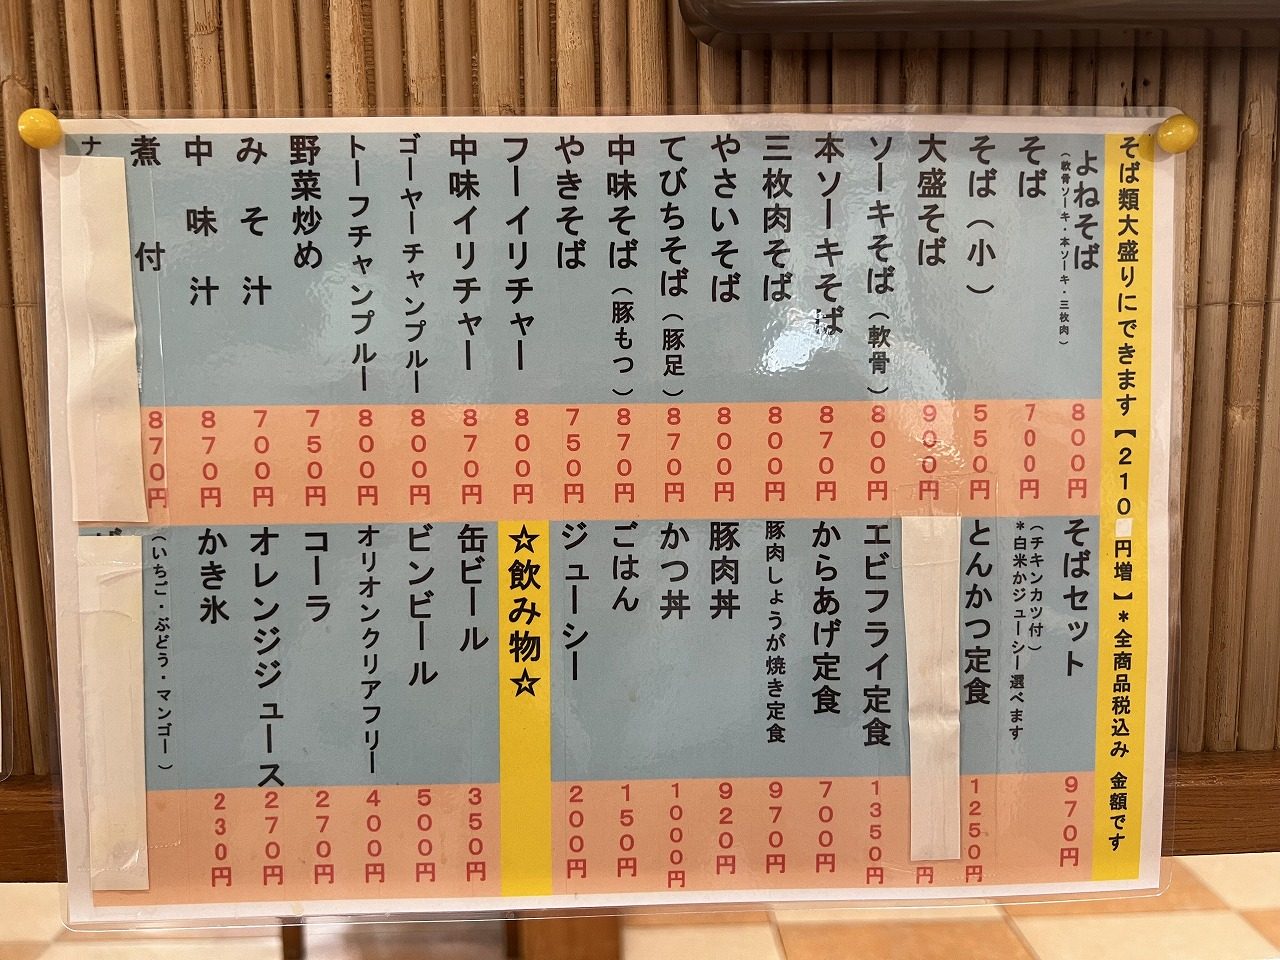 そば類大盛りにできます【210円増】*全商品税込み 金額です
よねそば
(軟骨ソーキ・本ソーキ・三枚肉)
800円
そば
700円
そば(小)
550円
大盛そば
900円
ソーキそば(軟骨)
800円
本ソーキそば
870円
三枚肉そば
800円
やさいそば
800円
てびちそば(豚足)
870円
中味そば(豚もつ)
870円
やきそば
750円
フーイリチャー
800円
中味イリチャー
870円
ゴーヤーチャンプルー
800円
トーフチャンプルー
800円
野菜炒め
750円
みそ汁
700円
中味汁
870円
煮付
870円
そばセット
(チキンカツ付)
*白米かジューシー選べます
970円
とんかつ定食
1250円
円
エビフライ定食
1350円
からあげ定食
700円
豚肉しょうが焼き定食
970円
豚肉丼
920円
かつ丼
1000円
ごはん
150円
ジューシー
200円
☆飲み物☆
缶ビール
350円
ビンビール
500円
オリオンクリアフリー
400円
コーラ
270円
オレンジジュース
270円
かき氷
(いちご・ぶどう・マンゴー)
230円